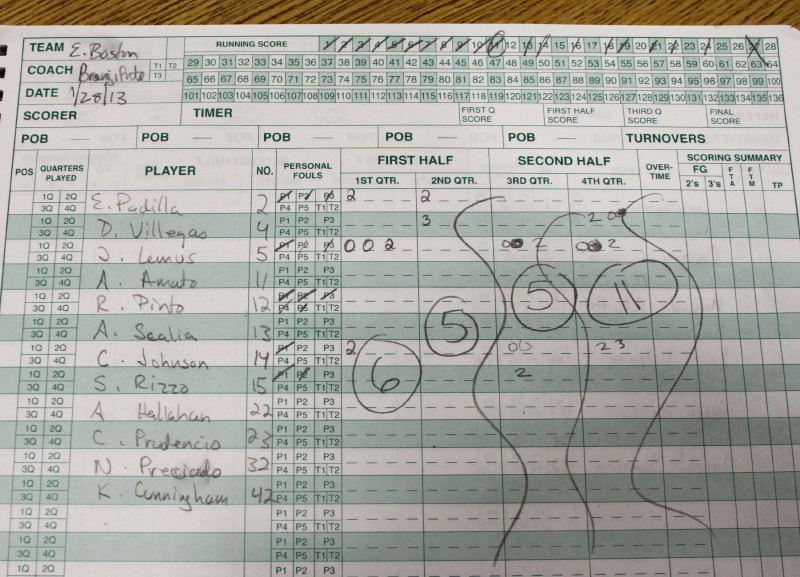 TEAM E. Boston RUNNING SCORE 1 2 3 4 5 6 7 8 9 10 11 12 13 14 15 16 17 18 19 20 21 22 23 24 25 26 27 28
COACH T1 T2 29 30 31 32 33 34 35 36 37 38 39 40 41 42 43 44 45 46 47 48 49 50 51 52 53 54 55 56 57 58 59 60 61 62 63 64
T3 65 66 67 68 69 70 71 72 73 74 75 76 77 78 79 80 81 82 83 84 85 86 87 88 89 90 91 92 93 94 95 96 97 98 99 100
DATE 1/28/13 101 102 103 104 105 106 107 108 109 110 111 112 113 114 115 116 117 118 119 120 121 122 123 124 125 126 127 128 129 130 131 132 133 134 135 136
SCORER TIMER FIRST Q SCORE FIRST HALF SCORE THIRD Q SCORE FINAL SCORE
POB — POB — POB — POB — POB — TURNOVERS
POS QUARTERS PLAYED PLAYER NO. PERSONAL FOULS FIRST HALF SECOND HALF OVER-TIME SCORING SUMMARY
1ST QTR. 2ND QTR. 3RD QTR. 4TH QTR. FG 2's 3's FTA FTM TP
1Q 2Q P1 P2 P3 2 2
3Q 4Q E. Padilla 2 P4 P5 T1 T2
1Q 2Q P1 P2 P3 3 2 0
3Q 4Q D. Villegas 4 P4 P5 T1 T2
1Q 2Q P1 P2 P3 0 0 2 0 2 0 2
3Q 4Q J. Lemus 5 P4 P5 T1 T2
1Q 2Q P1 P2 P3
3Q 4Q A. Amato 11 P4 P5 T1 T2 5 11
1Q 2Q P1 P2 P3
3Q 4Q R. Pinto 12 P4 P5 T1 T2
1Q 2Q P1 P2 P3 5
3Q 4Q A. Scalia 13 P4 P5 T1 T2
1Q 2Q P1 P2 P3 2 0 0 2 3
3Q 4Q C. Johnson 14 P4 P5 T1 T2
1Q 2Q P1 P2 P3 6 2
3Q 4Q S. Rizzo 15 P4 P5 T1 T2
1Q 2Q P1 P2 P3
3Q 4Q A Hallahan 22 P4 P5 T1 T2
1Q 2Q P1 P2 P3
3Q 4Q C. Prudencio 23 P4 P5 T1 T2
1Q 2Q P1 P2 P3
3Q 4Q N. Preciado 32 P4 P5 T1 T2
1Q 2Q P1 P2 P3
3Q 4Q K. Cunningham 42 P4 P5 T1 T2
1Q 2Q P1 P2 P3
3Q 4Q P4 P5 T1 T2
1Q 2Q P1 P2 P3
3Q 4Q P4 P5 T1 T2
1Q 2Q P1 P2 P3